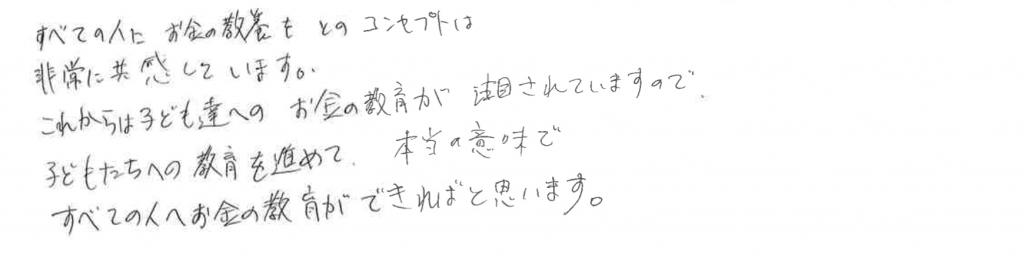 すべての人に お金の教養を とのコンセプトは
非常に共感しています。
これからは子ども達への お金の教育が 注目されていますので、
子どもたちへの教育を進めて、 本当の意味で
すべての人へお金の教育ができればと思います。